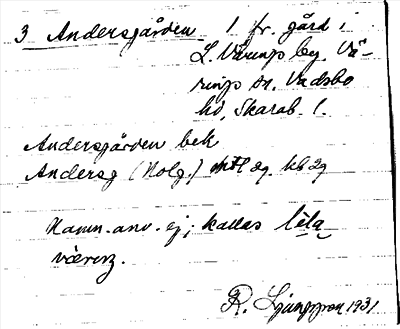 3 Andersgården 1 fr. gård i
L. Värings by, Vä-
rings sn. Vadsbo
hd, Skarab. l.
Andersgården bek
Andersg (Holg.) mtl äg. kb 2g
Namn. anv. ej; kallas lila
R. Ljunggren 1931